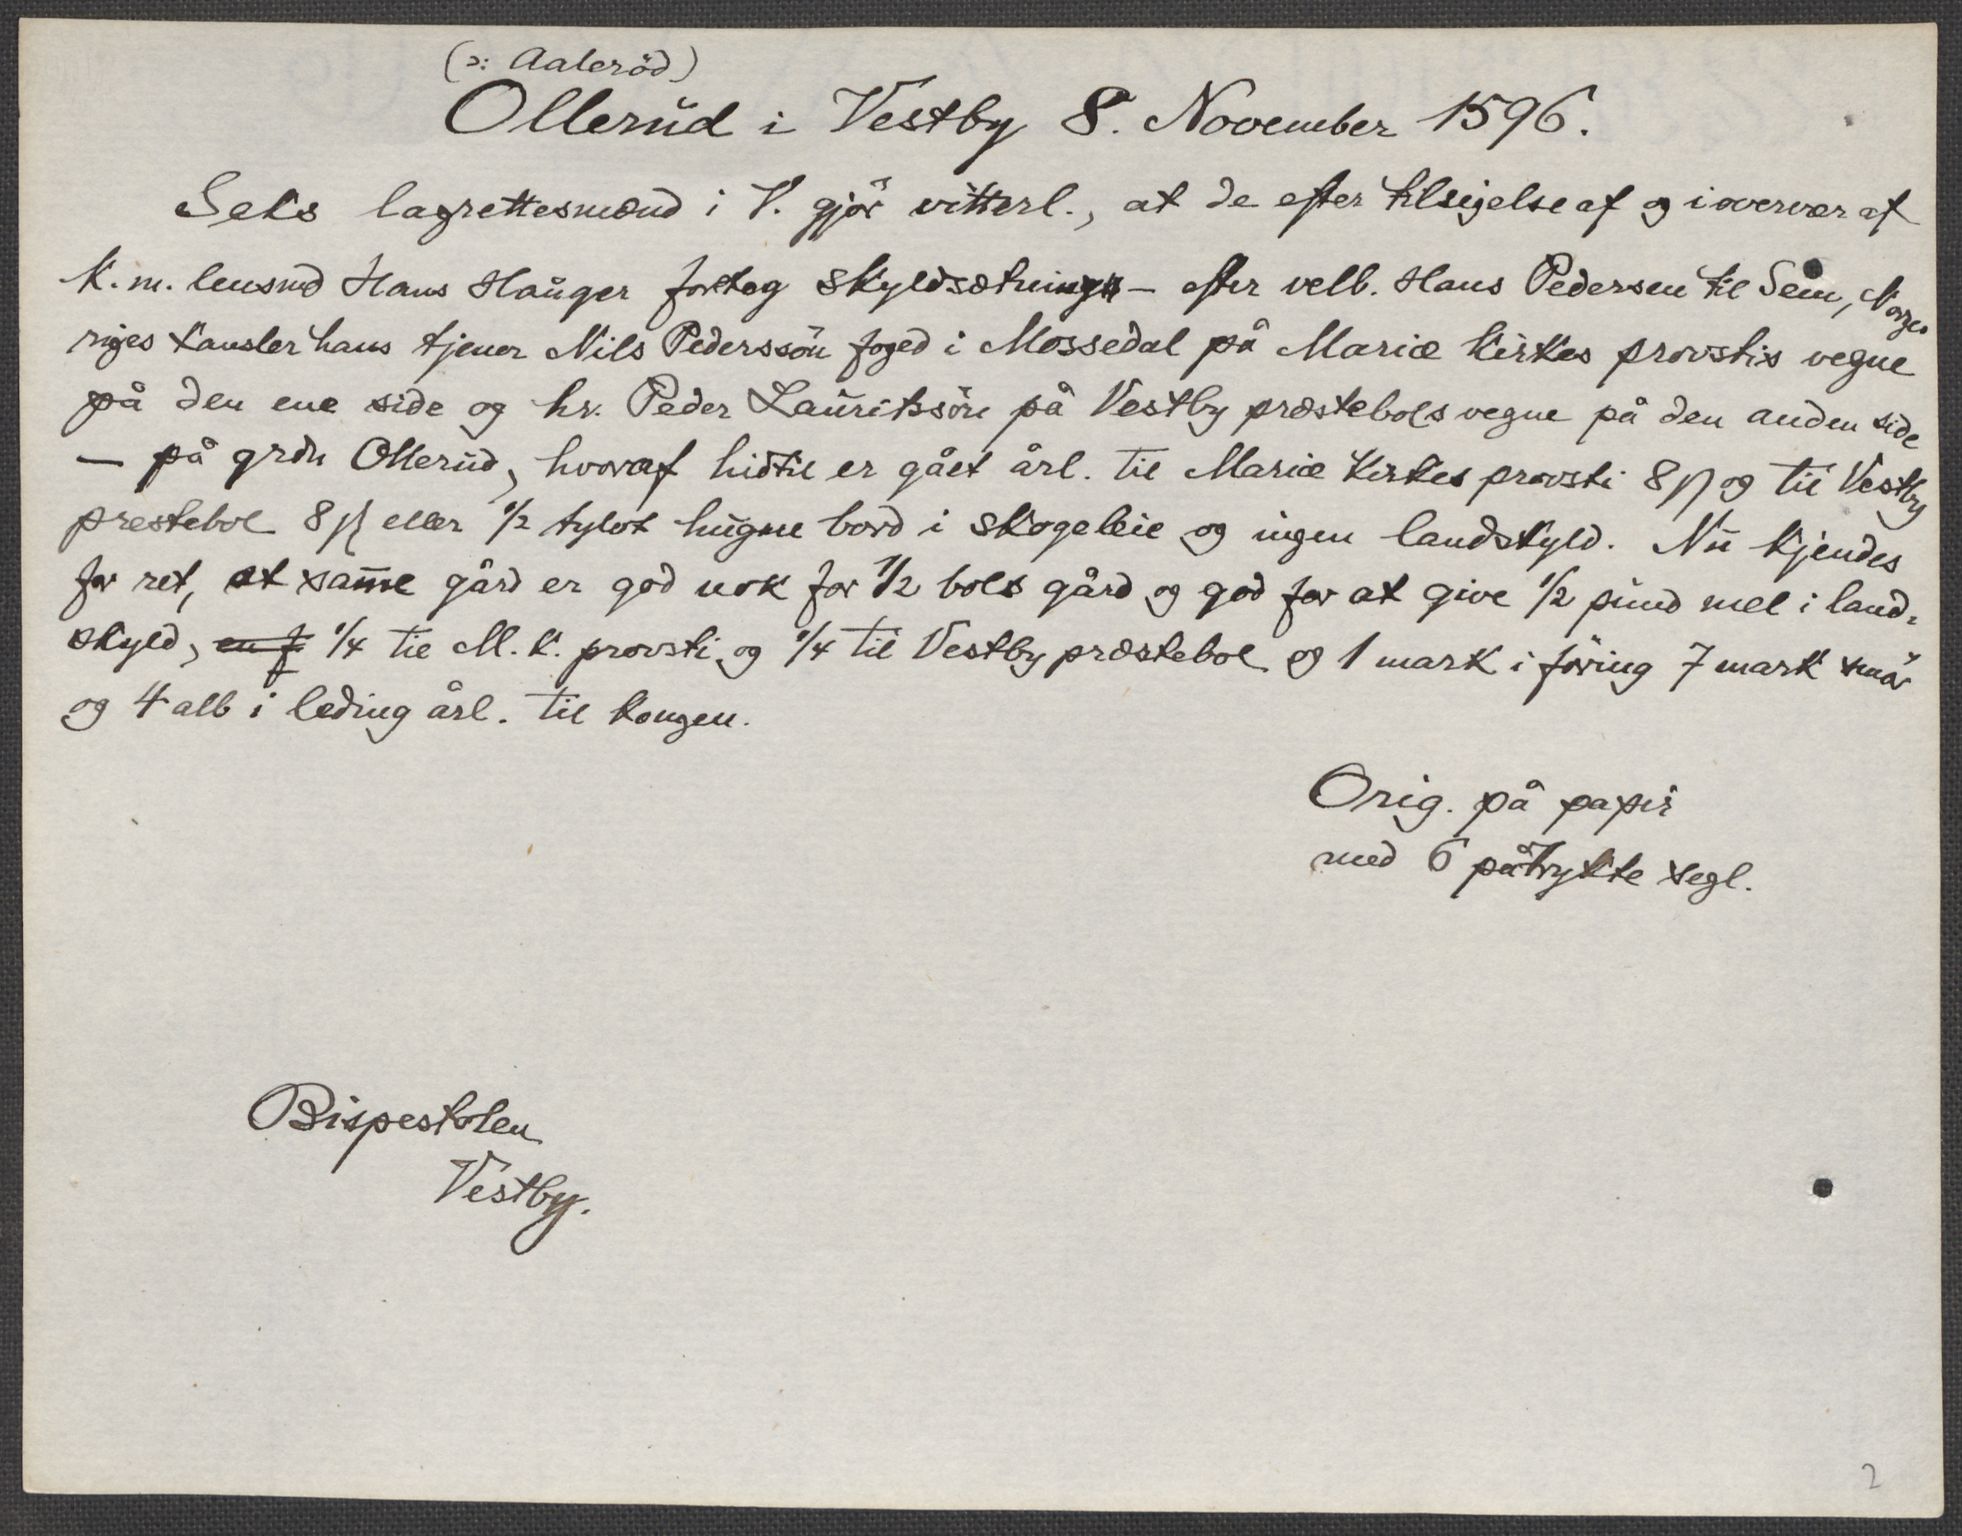 (ɔ: Aaleröd)
Ollerŭd i Vestby 8. November 1596.
Seks lagrettesmænd i V. gjör vitterl., at de efter tilsigelse af og i overvær af
K. m. lensmd Hans Haŭger foretog skyldsætning – efter velb. Hans Pedersen til Sem, Norges
riges kansler hans tjener Nils Pederssön foged i Mossedal på Mariæ kirkes provstis vegne
på den ene side og hr. Peder Laŭritssön på Vestby præstebols vegne på den anden side
– på grdn Ollerŭd, hvoraf hidtil er gået årl. til Mariæ kirkes provsti 8 β og til Vestby
prestebol 8 β eller 1/2 tylvt hŭgne bord i skogeleie og ingen landskyld. Nŭ kjendes
for ret, at sam̄e gård er god nok for 1/2 bols gård og god for at give 1/2 pŭnd mel i land-
skyld, ~~en f~~ 1/4 til M. K. provsti og 1/4 til Vestby præstebol og 1 mark i föring 7 mark smör
og 4 alb i leding årl. til kongen.
Orig. på papir
med 6 påtrykte segl.
Bispestolen
Vestby.
2